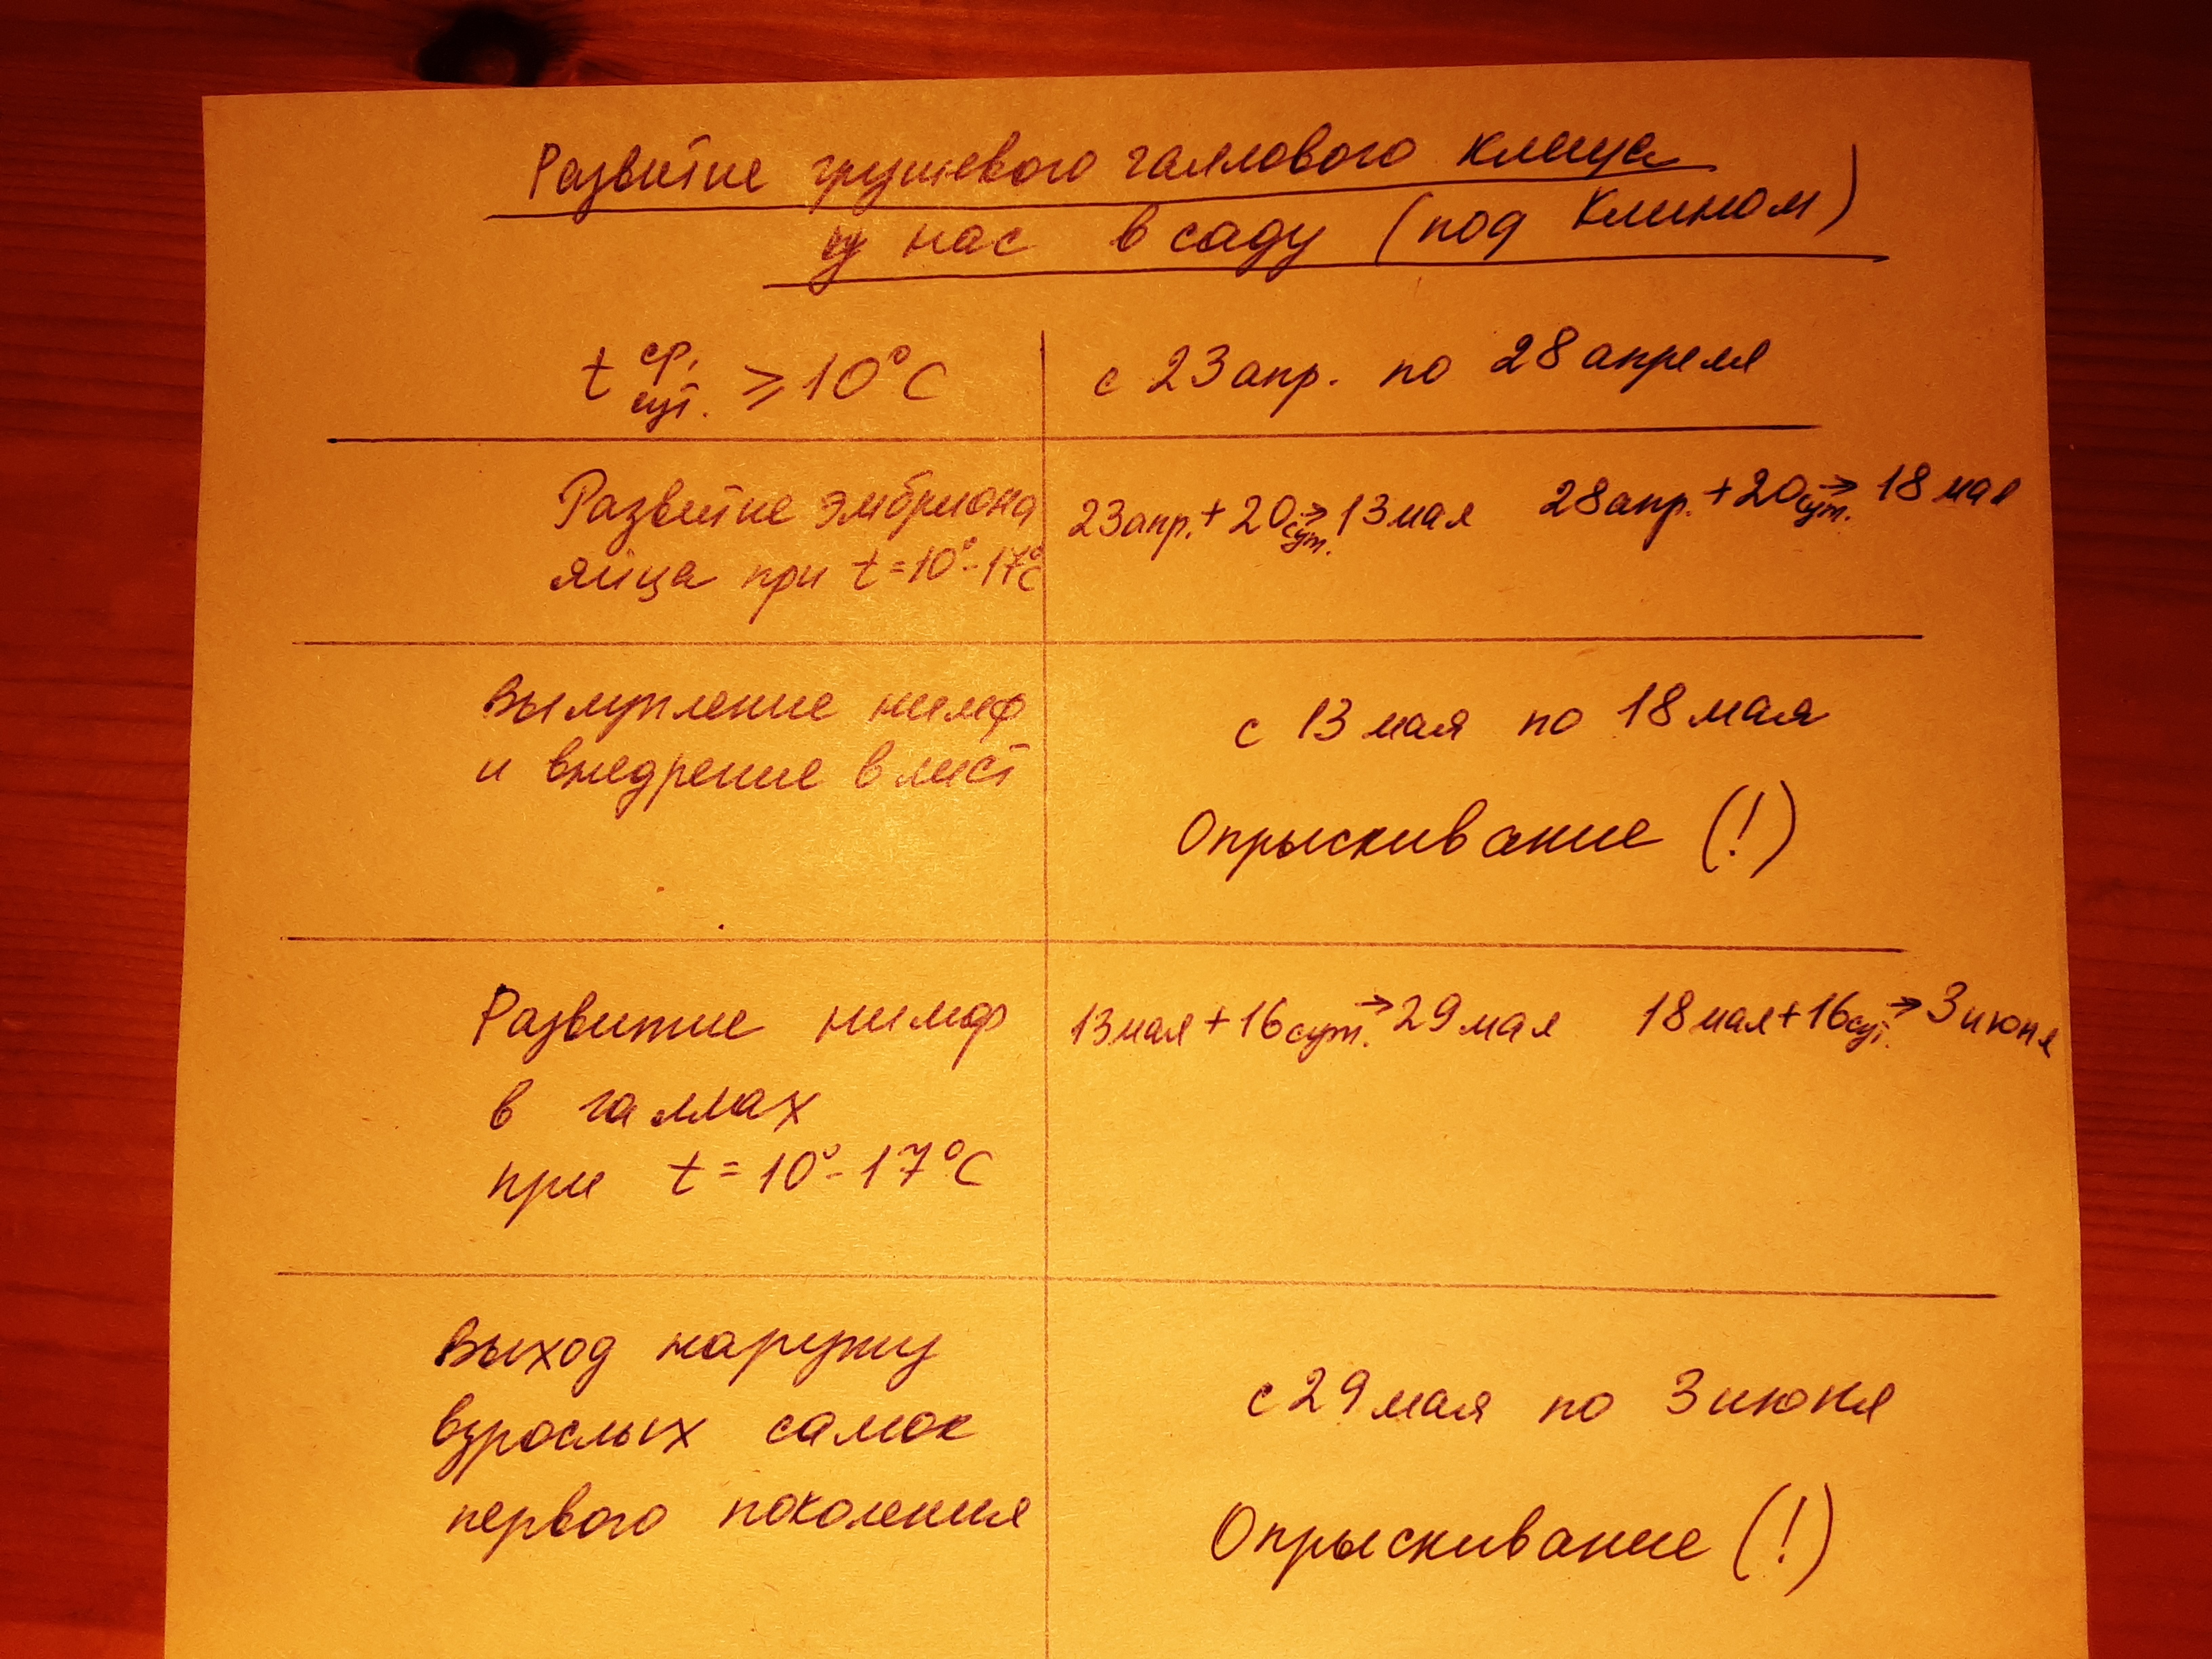 Развитие грушевого галлового клеща
у нас в саду (под Клином)
t ср. сут. ⩾ 10°C
с 23 апр. по 28 апреля
Развитие эмбриона
яйца при t = 10° - 17°C
23 апр. + 20 сут. → 13 мая 28 апр. + 20 сут. → 18 мая
Вылупление нимф
и внедрение в лист
с 13 мая по 18 мая
Опрыскивание (!)
Развитие нимф
в галлах
при t = 10° - 17°C
13 мая + 16 сут. → 29 мая 18 мая + 16 сут. → 3 июня
Выход наружу
взрослых самок
первого поколения
с 29 мая по 3 июня
Опрыскивание (!)